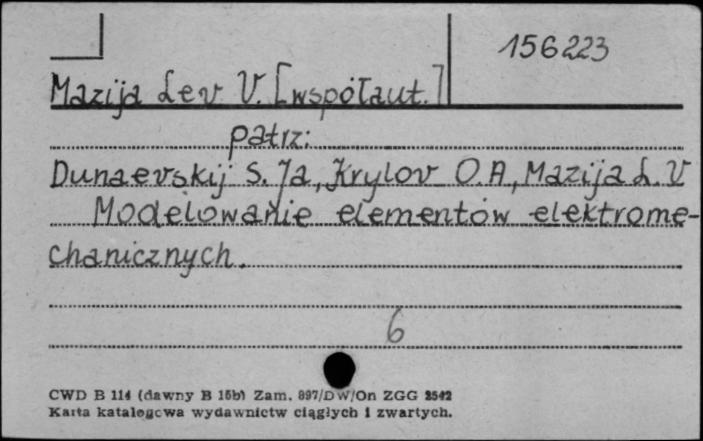 156223
Mazija Lev V. [współaut.]
patrz:
Dunaevskij S. Ja, Krylov O.A, Mazija L. V
Modelowanie elementów elektrome-
chanicznych.
6
CWD B 114 (dawny B 15b) Zam. 897/DW/On ZGG 2542
Karta katalogowa wydawnictw ciągłych i zwartych.